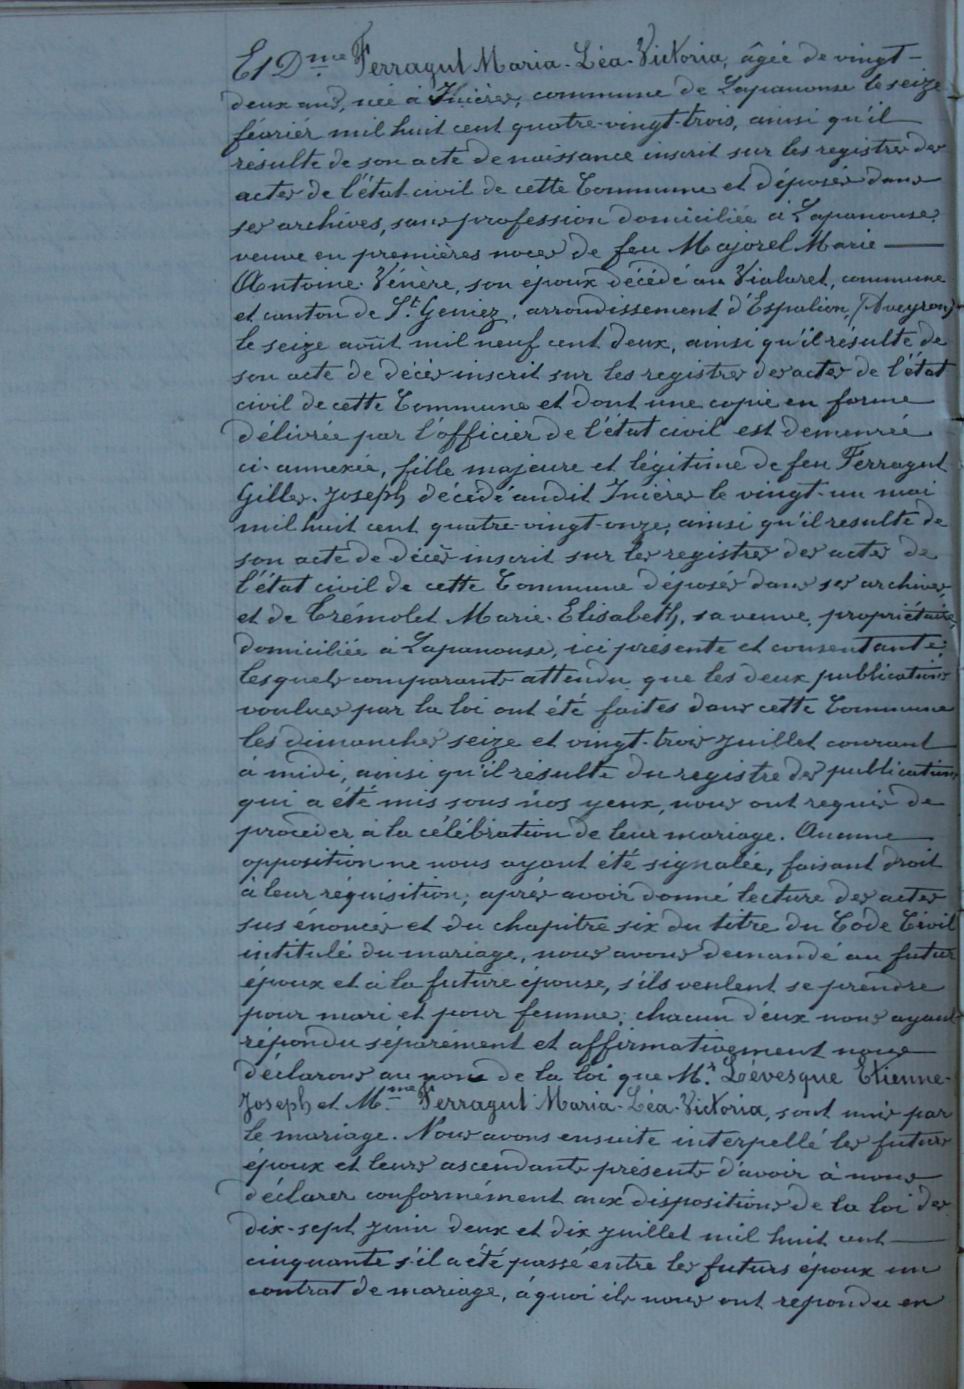 Et Dme Ferragut Maria-Léa-Victoria, âgée de vingt-
deux ans, née à Inières, commune de Lapanouse le seize
février mil huit cent quatre-vingt-trois, ainsi qu'il
résulte de son acte de naissance inscrit sur les registres des
actes de l'état-civil de cette Commune et déposés dans
ses archives, sans profession domiciliée à Lapanouse,
veuve en premières noces de feu Majorel Marie —
Antoine-Vénère, son époux décédé au Vialaret, commune
et canton de St Geniez, arrondissement d'Espalion, (Aveyron)
le seize août mil neuf cent deux, ainsi qu'il résulte de
son acte de décès inscrit sur les registres des actes de l'état
civil de cette Commune et dont une copie en forme
délivrée par l'officier de l'état civil est demeurée
ci-annexée, fille majeure et légitime de feu Ferragut
Gilles-Joseph décédé audit Inières le vingt-un mai
mil huit cent quatre-vingt-onze, ainsi qu'il resulte de
son acte de décès inscrit sur les registres des actes de
l'état civil de cette Commune déposés dans ses archives,
et de Crémolet Marie-Elisabeth, sa veuve, propriétaire,
domiciliée à Lapanouse, ici présente et consentante;
lesquels comparants attendu que les deux publications
voulues par la loi ont été faites dans cette Commune
les dimanches seize et vingt-trois juillet courant
à midi, ainsi qu'il résulte du registre des publications
qui a été mis sous nos yeux, nous ont requis de
procéder à la célébration de leur mariage. Aucune
opposition ne nous ayant été signalée, faisant droit
à leur réquisition; après avoir donné lecture des actes
sus énoncés et du chapitre six du titre du Code Civil
intitulé du mariage, nous avons demandé au futur
époux et à la future épouse, s'ils veulent se prendre
pour mari et pour femme; chacun d'eux nous ayant
répondu séparément et affirmativement nous
déclarons au nom de la loi que Mr Lévesque Etienne-
Joseph et Mme Ferragut Maria-Léa-Victoria, sont unis par
le mariage. Nous avons ensuite interpellé les futurs
époux et leurs ascendants présents d'avoir à nous
déclarer conformément aux dispositions de la loi des
dix-sept juin deux et dix juillet mil huit cent —
cinquante s'il a été passé entre les futurs époux un
contrat de mariage, à quoi ils nous ont repondu en